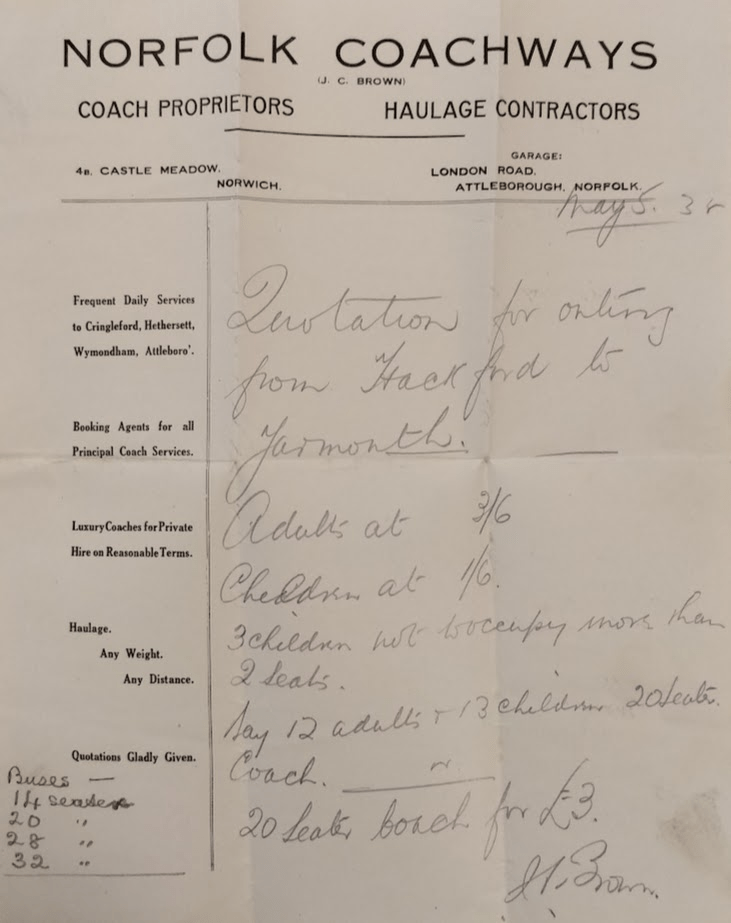 NORFOLK COACHWAYS
(J. C. BROWN)
COACH PROPRIETORS HAULAGE CONTRACTORS
4B, CASTLE MEADOW,
NORWICH.
GARAGE:
LONDON ROAD,
ATTLEBOROUGH, NORFOLK.
May 5.
Frequent Daily Services
to Cringleford, Hethersett,
Wymondham, Attleboro'.
Booking Agents for all
Principal Coach Services.
Luxury Coaches for Private
Hire on Reasonable Terms.
Haulage.
Any Weight.
Any Distance.
Quotations Gladly Given.
Buses —
14 seater
20 "
28 "
32 "
Quotation for outing
from Hackford to
Yarmouth. —
Adults at 3/6
Children at 1/6.
3 children not to occupy more than
2 Seats.
Say 12 adults + 13 children 20 Seater
Coach. or
20 Seater coach for £3.
J C Brown.